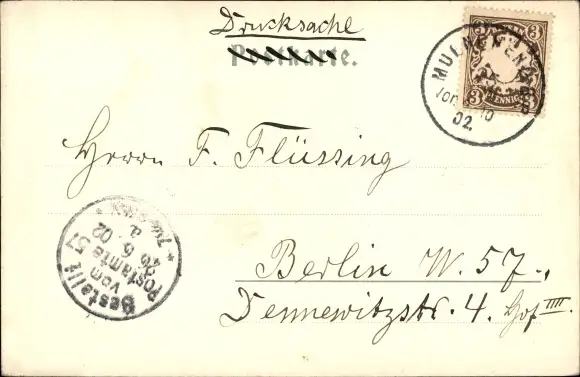 Drucksache
Postkarte.
3 3
PFENNIG
3 3
MUENCHEN
02.
Herrn F. Flüssing
Berlin W. 57.,
Dennewitzstr. 4. Hof IIII.
Bestellt
vom
Postamte 57
26. 6. 02